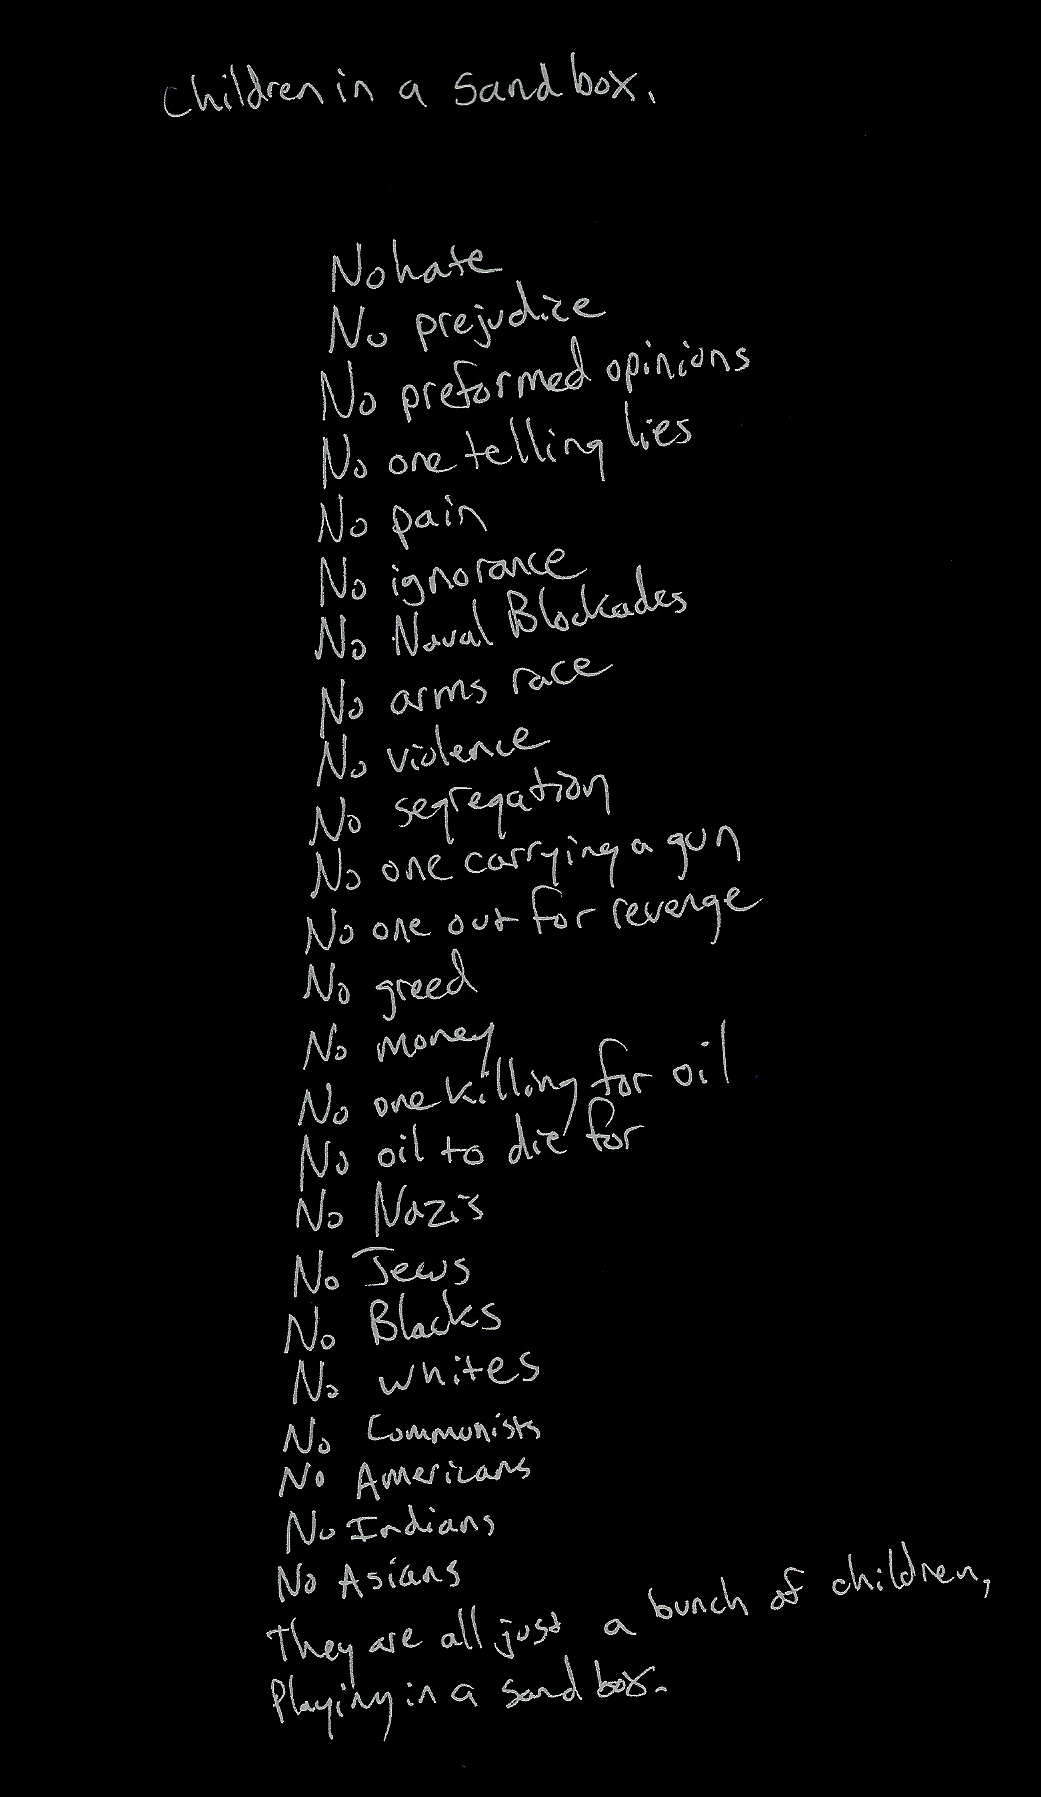 Children in a Sand box.
No hate
No prejudice
No preformed opinions
No one telling lies
No pain
No ignorance
No Naval Blockades
No arms race
No violence
No segregation
No one carrying a gun
No one out for revenge
No greed
No money
No one killing for oil
No oil to die for
No Nazis
No Jews
No Blacks
No whites
No Communists
No Americans
No Indians
No Asians
They are all just a bunch of children,
Playing in a sand box.